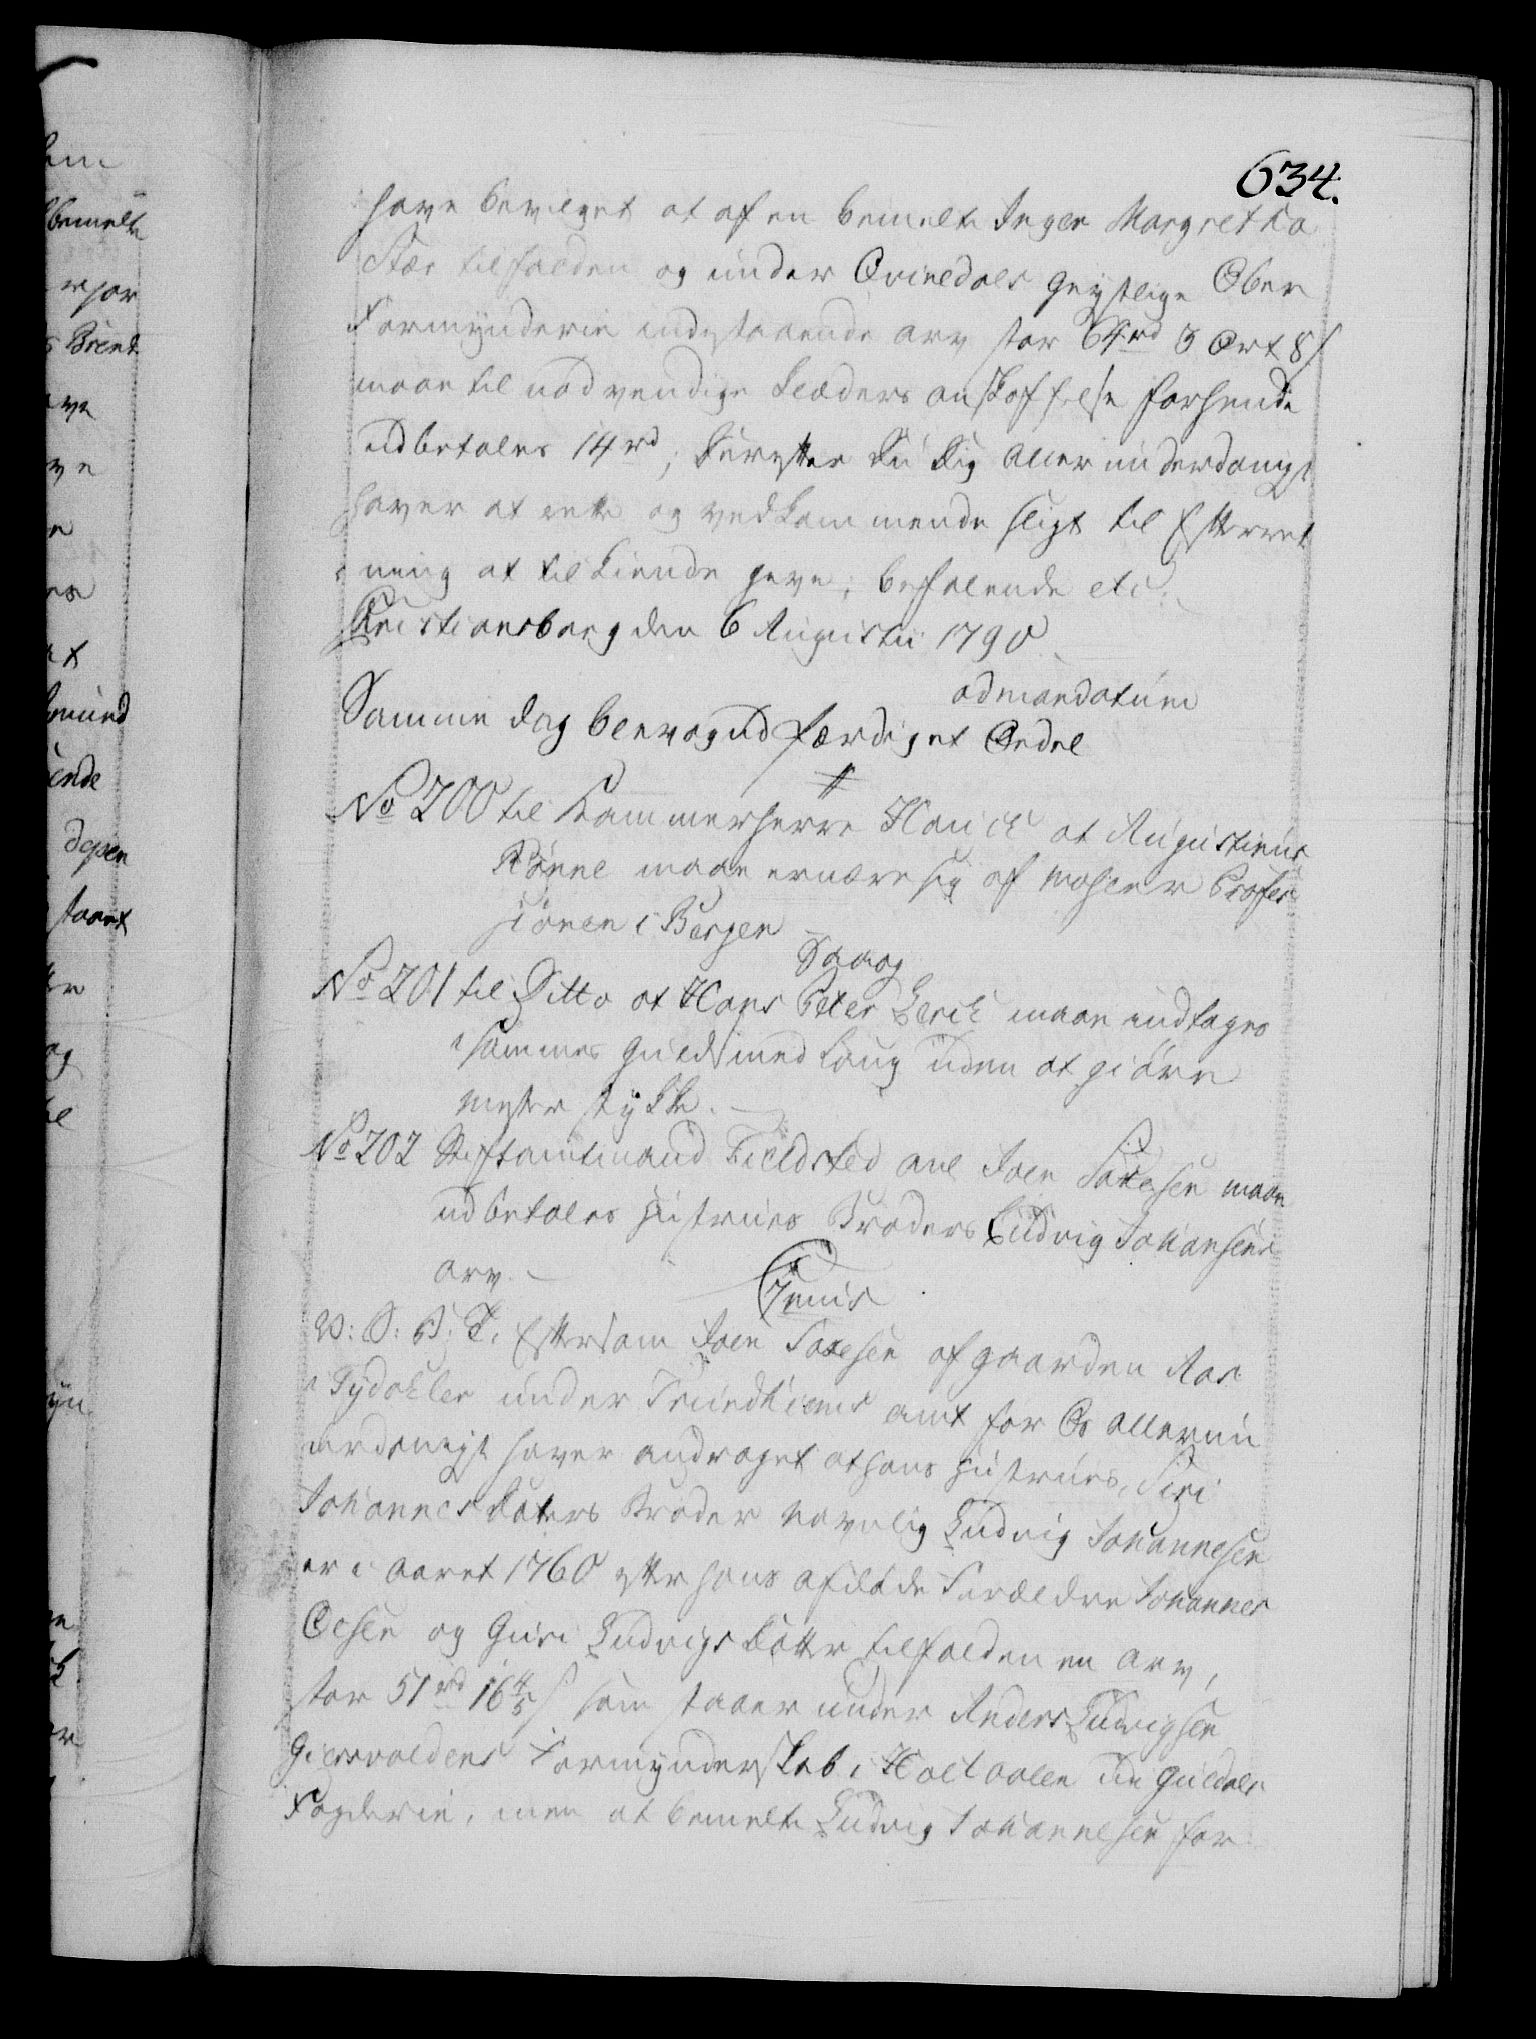 634.
have bevilget at af en bemelte Inger Margretha
Stær tilfalden og under Qvinedals geystlige Ober
Formynderie indestaaende arv stor 64 rd 3 Ort 8 s
maae til nødvendige Klæders anskaffelse forhende
udbetales 14 rd; derefter Du dig allerunderdanigst
haver at rette og vedkommende sligt til Efterret
ning at tilkiende give; befalende etc.
Christiansborg den 6 Augustii 1790
ad mandatum
Samme dag blev og udfærdiget Ordre
No 200 til Kammerherre Hauch at Augustinus
Rönne maae ernære sig af
sionen i Bergen
Saaog
No 201 til Ditto at Hans Peter Lerch maae indtages
i sammes Guldsmed Laug uden at giøre
mester stykke.
No 202 Stiftamtmand Fieldsted anl Joen Saxesen maae
udbetales Hustrues Broders Ludvig Johansens
arv.
Jenis
V: G: B: T: Eftersom Joen Saxesen af gaarden Aas
i Tydahlen under Trundhiems amt for Os allerun
derdanigst haver andraget at hans Hustrues, Siri
Johannesdaters Broder navnlig Ludvig Johannesen
er i Aaret 1760 efter hans afdöde Forældre Johannes
Olsen og Guri Ludvigsdatter tilfalden en arv,
stor 51 rd 16 4/5 s som staaer under Anders Ludvigsen
Giersvoldens Formynderskab i Holtaalen Guldals
Fogderie, men at bemelte Ludvig Johannesen for